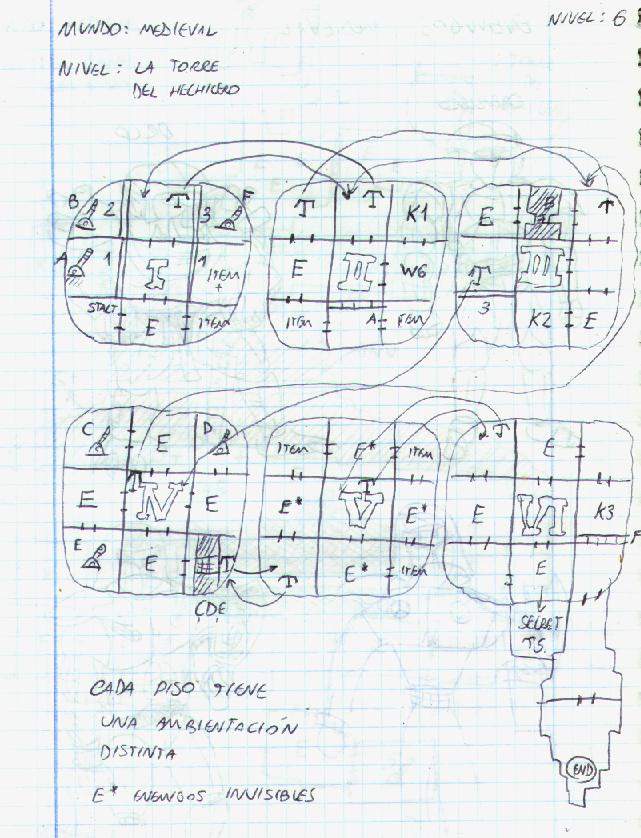 NIVEL: 6
MUNDO: MEDIEVAL
NIVEL: LA TORRE
DEL HECHICERO
B 2 T 3 F
A 1 I 1 ITEM
+
START E ITEM
T T K1
E II W6
ITEM A ITEM
E B T
T III
3 K2 E
C E D
E T IV E
E E T
CDE
ITEM E* ITEM
E* T V E*
T E* ITEM
2 T E
E VI K3
F
E
SECRET
T.S.
END
CADA PISO TIENE
UNA AMBIENTACIÓN
DISTINTA
E* ENEMIGOS INVISIBLES